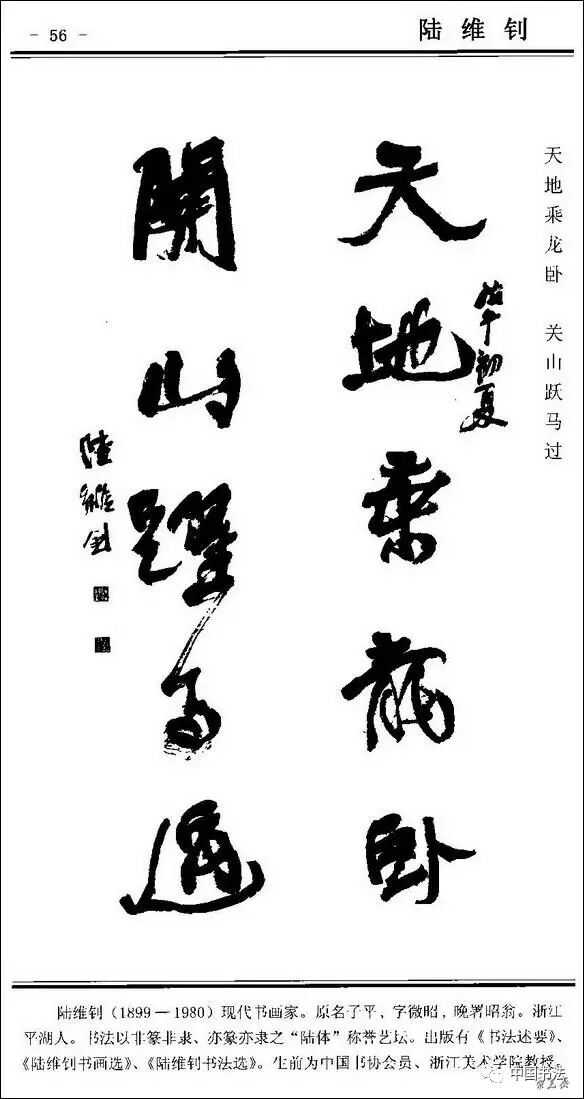 - 56 -
陆维钊
天地乘龙卧 关山跃马过
天地乘龍卧
午初夏
關山躍馬過
陸維釗
陆维钊(1899－1980)现代书画家。原名子平,字微昭,晚署昭翁。浙江
平湖人。书法以非篆非隶、亦篆亦隶之“陆体”称誉艺坛。出版有《书法述要》、
《陆维钊书画选》、《陆维钊书法选》。生前为中国书协会员、浙江美术学院教授。
中国书法